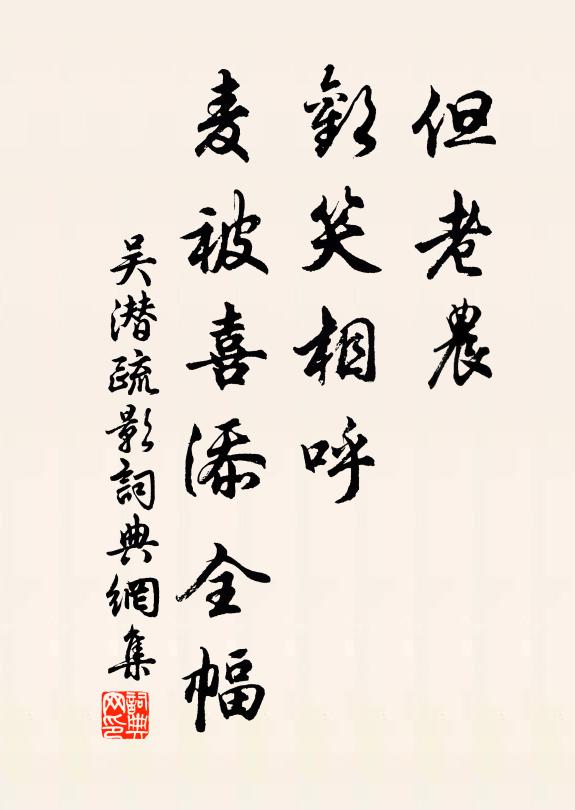 但老農
歡笑相呼
麦被喜添全幅
吴潜疏影詞典網集
詞典網印